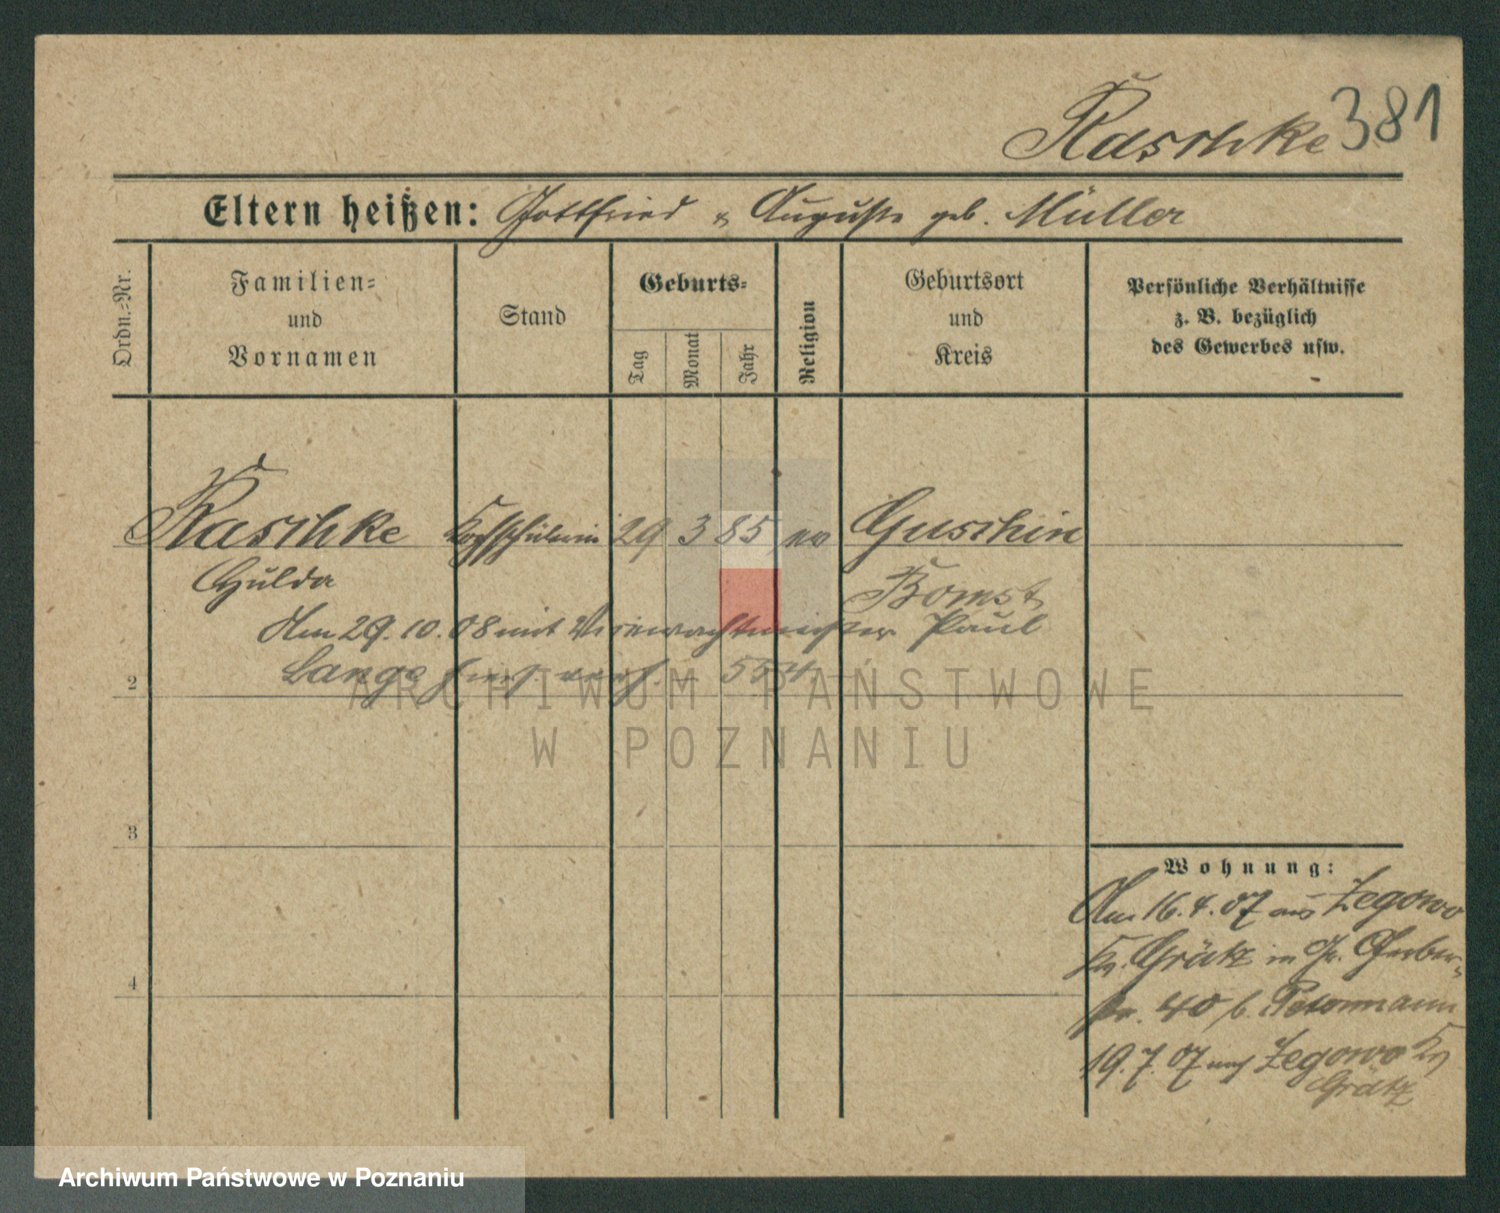 Raschke 381
Eltern heißen: Gottfried u. Auguste geb. Müller
Ordn.-Nr.
Familien-
und
Vornamen
Stand
Geburts-
Tag
Monat
Jahr
Religion
Geburtsort
und
Kreis
Persönliche Verhältnisse
z. B. bezüglich
des Gewerbes usw.
Raschke Kochschülerin 29 3 85 ev Guschin
Hulda Bomst
Am 29.10.08 mit Paul
Lange hies. verh. 554.
2
3
4
Wohnung:
Am 16.4.07 aus Zegowo
Kr. Grätz in Gr. Gerber-
str. 40 b. Petermann
19.7.07 nach Zegowo Kr
Grätz
ARCHIWUM PAŃSTWOWE
W POZNANIU
Archiwum Państwowe w Poznaniu